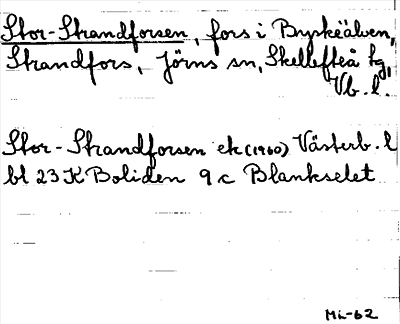 Stor-Strandforsen, fors i Byskeälven,
Strandfors, Jörns sn, Skellefteå tg,
Vb. l.
Stor-Strandforsen ek (1960) Västerb. l
bl 23 K Boliden 9 c Blankselet
Mi-62